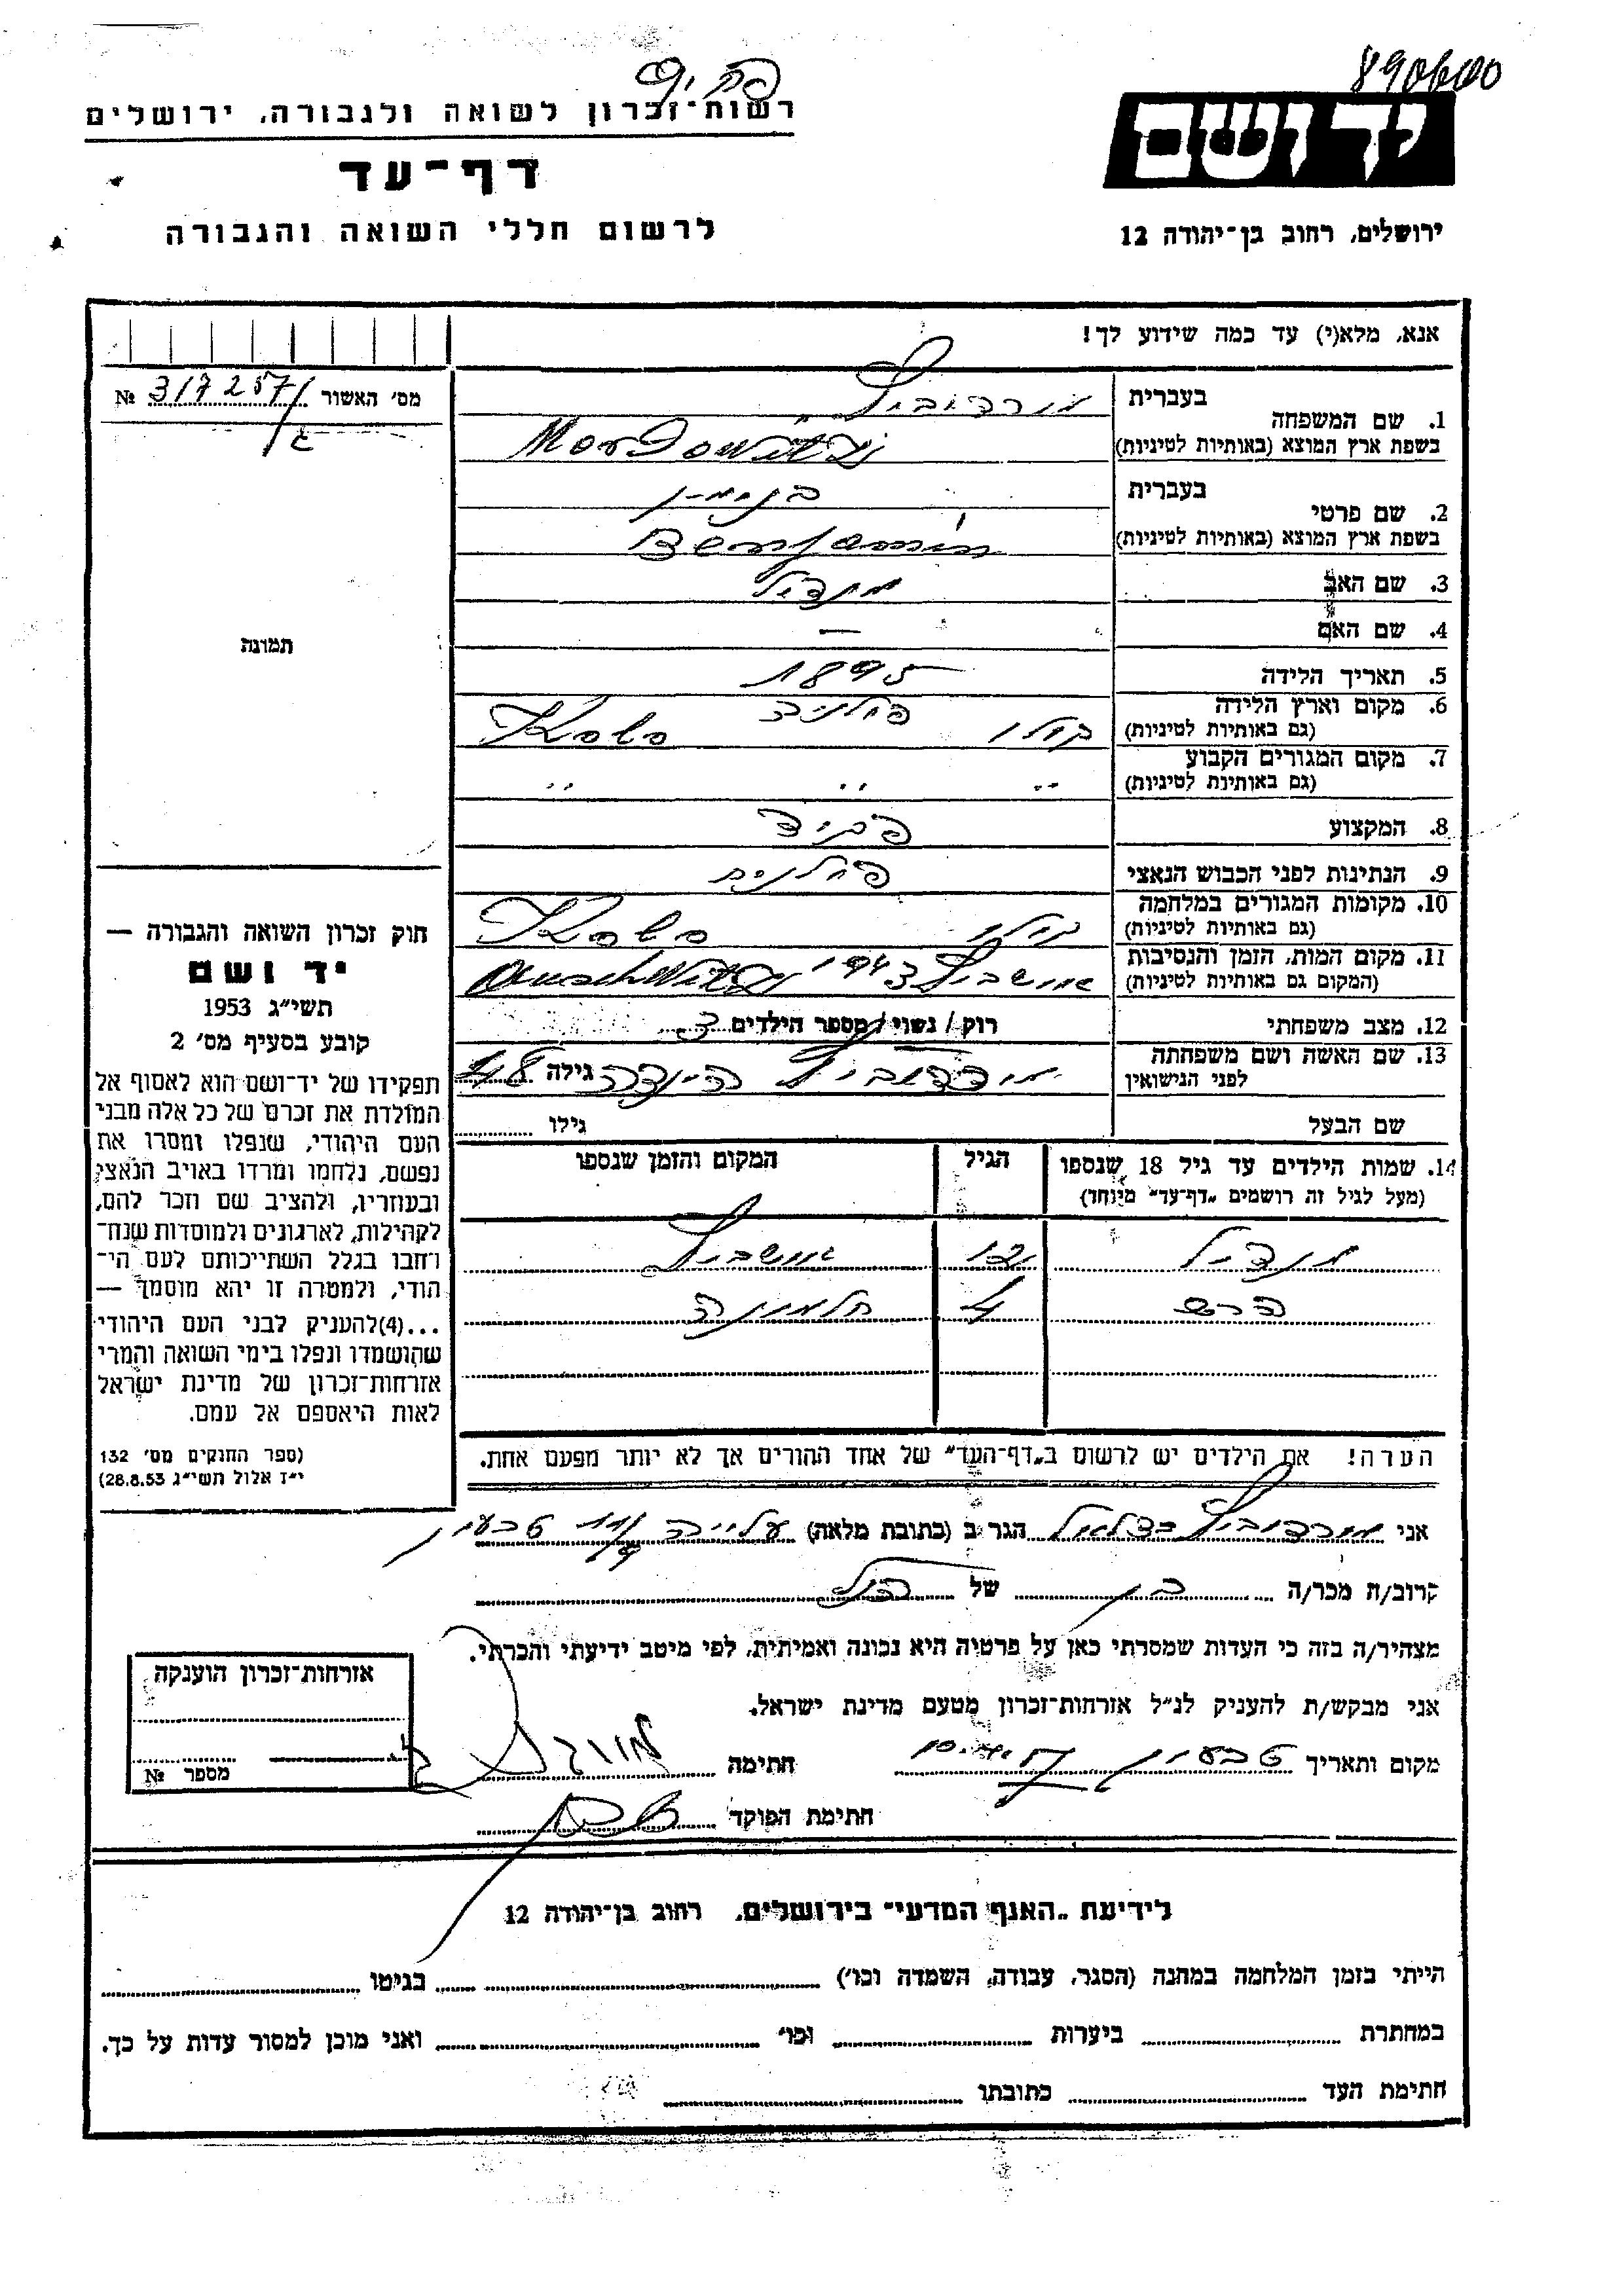 890600
רשות־זכרון לשואה ולגבורה, ירושלים
דף־עד
לרשום חללי השואה והגבורה
יד ושם
ירושלים, רחוב בן־יהודה 12
אנא, מלא(י) עד כמה שידוע לך!
מס׳ האשור 317257 №
1. שם המשפחה
בעברית מורדוביץ
בשפת ארץ המוצא (באותיות לטיניות) Mordowitz
2. שם פרטי
בעברית בנימין
בשפת ארץ המוצא (באותיות לטיניות) Benjamin
3. שם האב מנדיל
4. שם האם —
5. תאריך הלידה 1895
6. מקום וארץ הלידה
(גם באותיות לטיניות) קולו פולניה Kolo
7. מקום המגורים הקבוע
(גם באותיות לטיניות) " " "
8. המקצוע
9. הנתינות לפני הכבוש הנאצי פולנית
10. מקומות המגורים במלחמה
(גם באותיות לטיניות) קולו Kolo
11. מקום המות, הזמן והנסיבות
(המקום גם באותיות לטיניות) אושביץ 1943
12. מצב משפחתי רוק / נשוי / מספר הילדים 3
13. שם האשה ושם משפחתה
לפני הנישואין מורדוביץ הינדה גילה 48
שם הבעל גילו
14. שמות הילדים עד גיל 18 שנספו
(מעל לגיל זה רושמים „דף־עד״ מיוחד)
הגיל
המקום והזמן שנספו
מנדיל 12 אושביץ
הרש 4 חלמונה
הערה! את הילדים יש לרשום ב„דף־העד״ של אחד ההורים אך לא יותר מפעם אחת.
תמונה
חוק זכרון השואה והגבורה —
יד ושם
תשי״ג 1953
קובע בסעיף מס׳ 2
תפקידו של יד־ושם הוא לאסוף אל
המולדת את זכרם של כל אלה מבני
העם היהודי, שנפלו ומסרו את
נפשם, נלחמו ומרדו באויב הנאצי
ובעוזריו, ולהציב שם וזכר להם,
לקהילות, לארגונים ולמוסדות שנח־
רחבו בגלל השתייכותם לעם הי־
הודי, ולמטרה זו יהא מוסמך —
...(4)להעניק לבני העם היהודי
שהושמדו ונפלו בימי השואה והמרי
אזרחות־זכרון של מדינת ישראל
לאות היאספם אל עמם.
(ספר החוקים מס׳ 132
י״ז אלול תשי״ג 28.8.53)
אני מורדוביץ בצלאל הגר ב (כתובת מלאה) טבעון
קרוב/ה מכר/ה בן של הנ״ל
מצהיר/ה בזה כי העדות שמסרתי כאן על פרטיה היא נכונה ואמיתית, לפי מיטב ידיעתי והכרתי.
אני מבקש/ת להעניק לנ״ל אזרחות־זכרון מטעם מדינת ישראל.
מקום ותאריך טבעון חתימה
חתימת הפוקד
אזרחות־זכרון הוענקה
מספר №
לידיעת „האגף המדעי״ בירושלים, רחוב בן־יהודה 12
הייתי בזמן המלחמה במחנה (הסגר, עבודה, השמדה וכו׳) בגיטו
במחתרת ביערות וכו׳ ואני מוכן למסור עדות על כך.
חתימת העד כתובתו